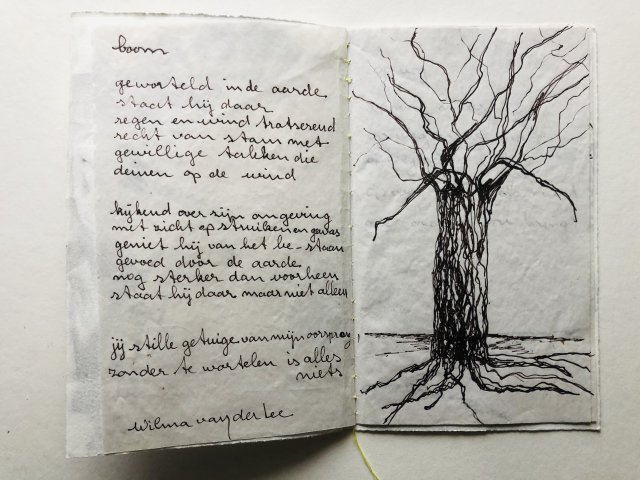 boom
geworteld in de aarde
staat hij daar
regen en wind tratserend
recht van stam met
gewillige takken die
deinen op de wind
kijkend over zijn omgeving
met zicht op struiken en gewas
geniet hij van het be-staan
gevoed door de aarde
nog sterker dan voorheen
staat hij daar maar niet alleen
jij stille getuige van mijn oorsprong
zonder te wortelen is alles
niets
wilma van der lee